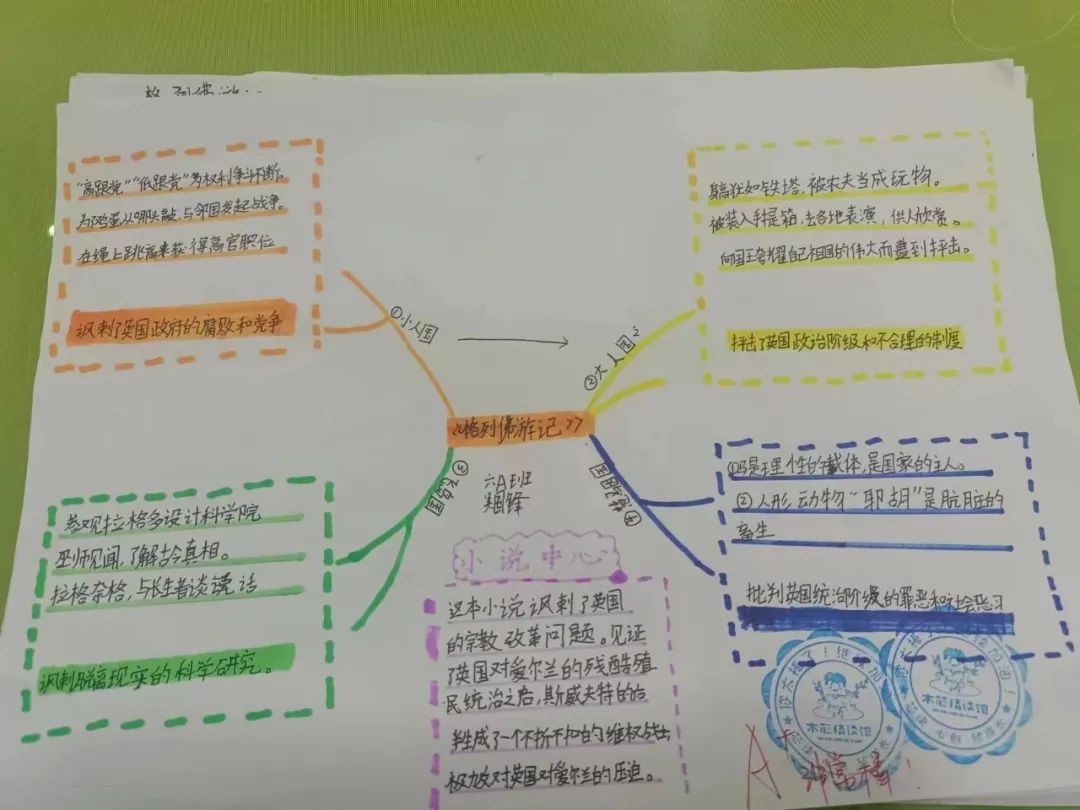 "高跟党""低跟党"为权利争斗不断。
为鸡蛋从哪头敲,与邻国发起战争。
在绳上跳高来获得高官职位
讽刺了英国政府的腐败和党争
①小人国
②大人国
躯狂如铁塔,被农夫当成玩物。
被装入手提箱,去各地表演,供人欣赏。
向国王夸耀自己祖国的伟大而遭到抨击。
抨击了英国政治阶级和不合理的制度
《格列佛游记》
六A班
③飞岛国
参观拉格多设计科学院
巫师见闻,了解古今真相。
拉格奈格,与长生者谈说话
讽刺脱离现实的科学研究。
④慧骃国
①马是理性的载体,是国家的主人。
②人形动物"耶胡"是肮脏的
畜生
批判英国统治阶级的罪恶和社会恶习
小说中心
这本小说讽刺了英国
的宗教改革问题。见证
了英国对爱尔兰的残酷殖
民统治之后,斯威夫特的后
半生成了一个不折不扣的维权战士,
极力反对英国对爱尔兰的压迫。
你太棒了!继续加油!
你太棒了!继续加油!
A+